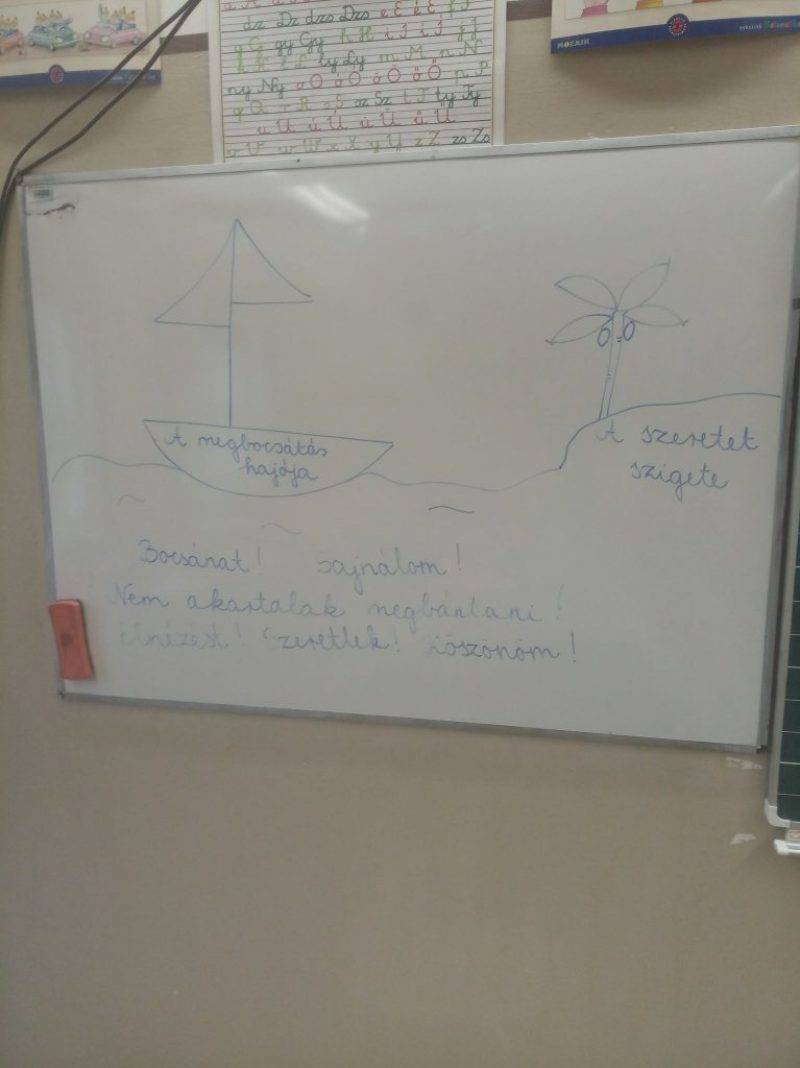 dz Dz dzs Dzs e E é É f F
g G gy Gy h H i I í Í j J
k K l L ly Ly m M n N
ny Ny o O ó Ó ö Ö ő Ő p P
q Q r R s S sz Sz t T ty Ty
u U ú Ú ü Ü ű Ű
v V w W x X y Y z Z zs Zs
MOZAIK
A megbocsátás
hajója
A szeretet
szigete
Bocsánat! Sajnálom!
Nem akartalak megbántani!
Elnézést! Szeretlek! Köszönöm!